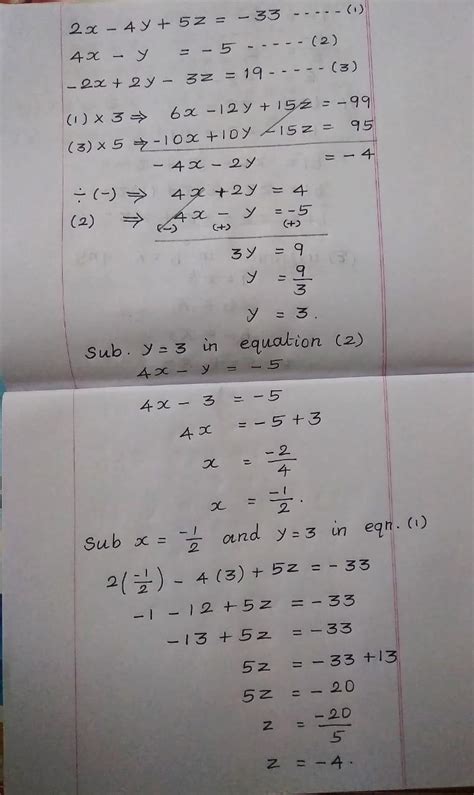 2x - 4y + 5z = -33 ----- (1)
4x - y = -5 ----- (2)
-2x + 2y - 3z = 19 ----- (3)
(1) × 3 ⇒ 6x - 12y + 15z = -99
(3) × 5 ⇒ -10x + 10y - 15z = 95
-4x - 2y = -4
÷ (-) ⇒ 4x + 2y = 4
(2) ⇒ 4x - y = -5
(-) (+) (+)
3y = 9
y = 9/3
y = 3.
Sub. y = 3 in equation (2)
4x - y = -5
4x - 3 = -5
4x = -5 + 3
x = -2/4
x = -1/2.
Sub x = -1/2 and y = 3 in eqn. (1)
2(-1/2) - 4(3) + 5z = -33
-1 - 12 + 5z = -33
-13 + 5z = -33
5z = -33 + 13
5z = -20
z = -20/5
z = -4.